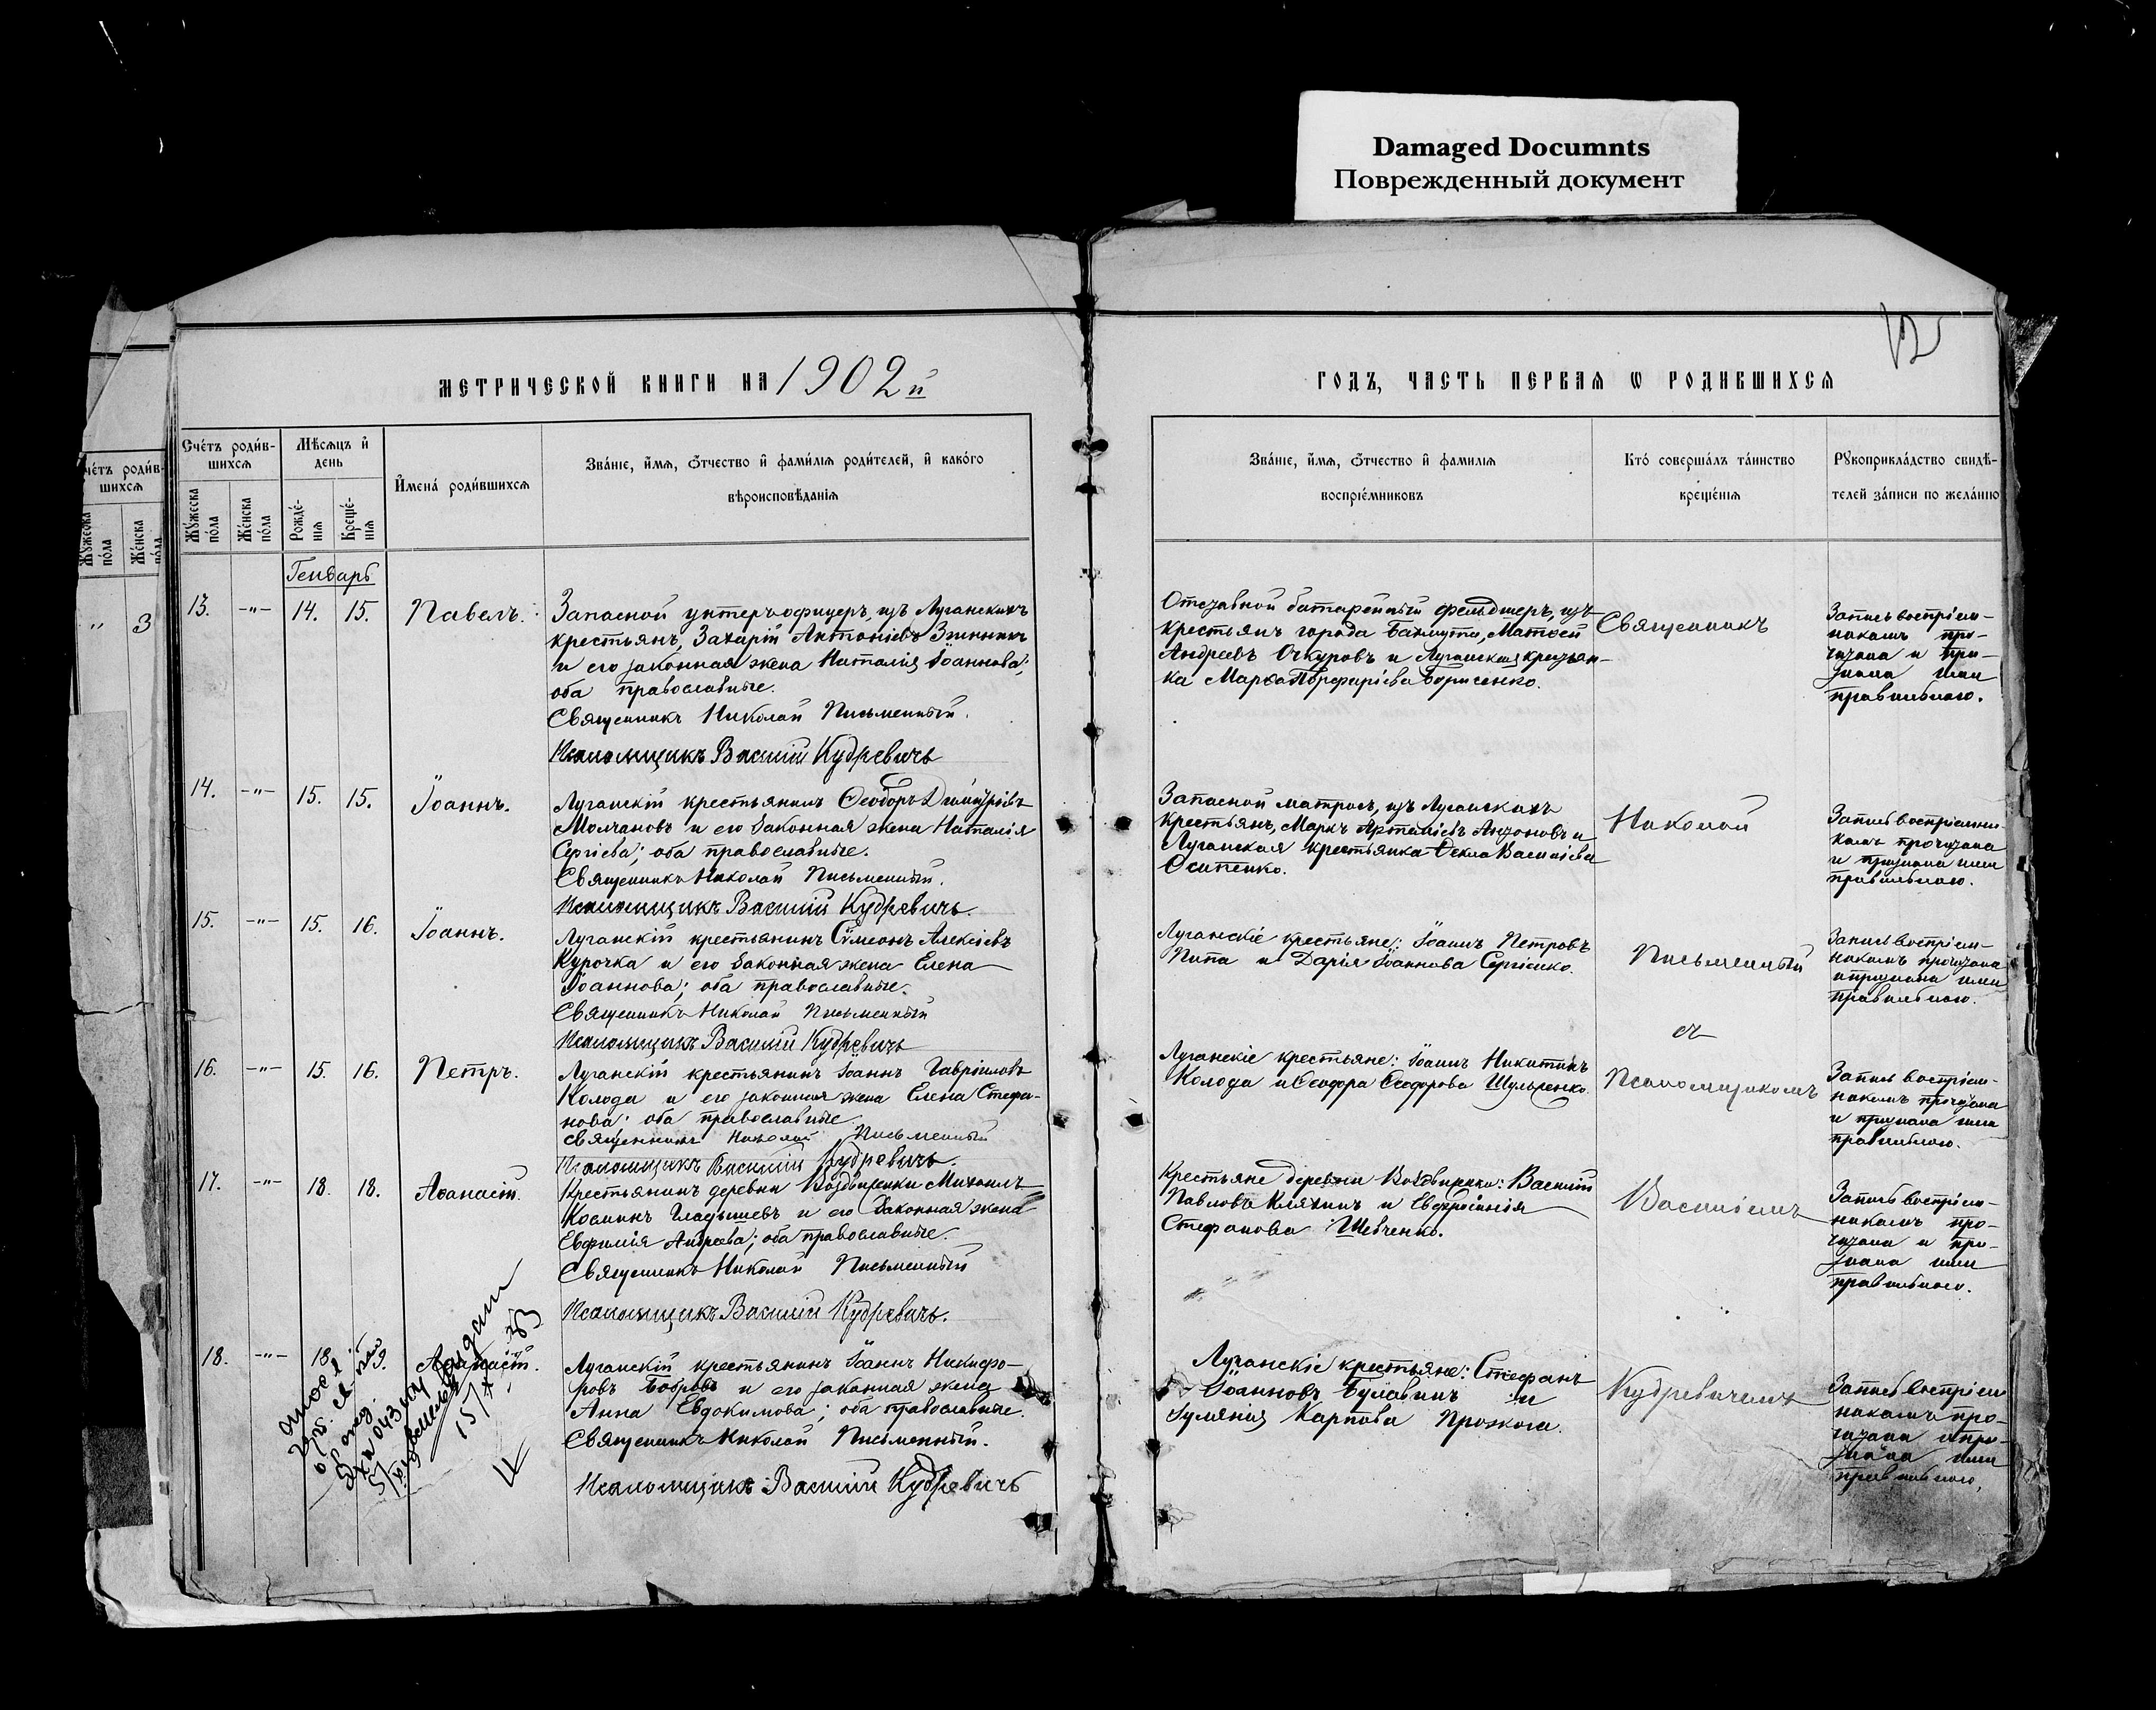 Damaged Documnts
Поврежденный документ
МЕТРИЧЕСКОЙ КНИГИ НА 1902й
ГОДЪ, ЧАСТЬ ПЕРВАЯ Ѡ РОДИВШИХСЯ
Счетъ родив-
шихся
Мужеска пола
Женска пола
Мѣсяцъ и
день
Рожде-
нія
Креще-
нія
Имена родившихся
Званіе, имя, отчество и фамилія родителей, и какого
вѣроисповѣданія
Званіе, имя, отчество и фамилия
воспріемниковъ
Кто совершалъ таинство
крещенія
Рукоприкладство свидѣ-
телей записи по желанію
3
Генварь
13. -"- 14. 15. Павелъ.
Запасной унтеръ-офицеръ, изъ Луганскихъ
крестьянъ, Захарій Антоніевъ
и его законная жена Наталія Іоаннова;
оба православные.
Священникъ Николай Письменный.
Псаломщикъ Василій Кудревичъ
Отставной батарейный фельдшеръ, изъ
крестьянъ города Бахмута, Матѳей
Андреевъ Очкуровъ и Луганская крестьян-
ка Марѳа Порфиріева Борисенко.
Священникъ
Запись воспріем-
никамъ про-
читана и при-
знана ими
правильною.
14. -"- 15. 15. Іоаннъ.
Луганскій крестьянинъ Ѳеодоръ Димитріевъ
Молчановъ и его законная жена Наталія
Сергіева; оба православные.
Священникъ Николай Письменный.
Псаломщикъ Василій Кудревичъ.
Запасной матросъ, изъ Луганскихъ
крестьянъ, Маркъ Артеміевъ Антоновъ и
Луганская крестьянка Ѳекла Василіева
Осипенко.
Николай
Запись воспріемни-
камъ прочитана
и признана ими
правильною.
15. -"- 15. 16. Іоаннъ.
Луганскій крестьянинъ Сѵмеонъ Алексіевъ
Курочка и его законная жена Елена
Іоаннова; оба православные.
Священникъ Николай Письменный
Псаломщикъ Василій Кудревичъ
Луганскіе крестьяне: Іоаннъ Петровъ
Пипа и Дарія Іоаннова Сергіенко.
Письменный
Запись воспріем-
никамъ прочитана
и признана ими
правильною.
съ
16. -"- 15. 16. Петръ.
Луганскій крестьянинъ Іоаннъ Гавріиловъ
Колода и его законная жена Елена Стефа-
нова; оба православные.
Священникъ Николай Письменный
Псаломщикъ Василій Кудревичъ.
Луганскіе крестьяне: Іоаннъ Никитинъ
Колода и Ѳеодора Ѳеодорова Шульженко.
Псаломщикомъ
Запись воспріем-
никамъ прочитана
и признана ими
правильною.
17. -"- 18. 18. Аѳанасій.
Крестьянинъ деревни Воздвиженки Михаилъ
Косминъ Гладышевъ и его законная жена
Евфимія Андреева; оба православные.
Священникъ Николай Письменный
Псаломщикъ Василій Кудревичъ.
Крестьяне деревни Воздвиженки: Василій
Павловъ Кляхинъ и Евфросинія
Стефанова Шевченко.
Василіемъ
Запись воспріем-
никамъ про-
читана и при-
знана ими
правильною.
18. -"- 18. Аѳанасій.
Луганскій крестьянинъ Іоаннъ Никифо-
ровъ Бобровъ и его законная жена
Анна Евдокимова; оба православные.
Священникъ Николай Письменный.
Псаломщикъ Василій Кудревичъ
Луганскіе крестьяне: Стефанъ
Іоанновъ Булавинъ и
Іуліянія Карпова Прожога.
Кудревичемъ
Запись воспріем
никамъ про-
читана и при-
знана ими
правильною.